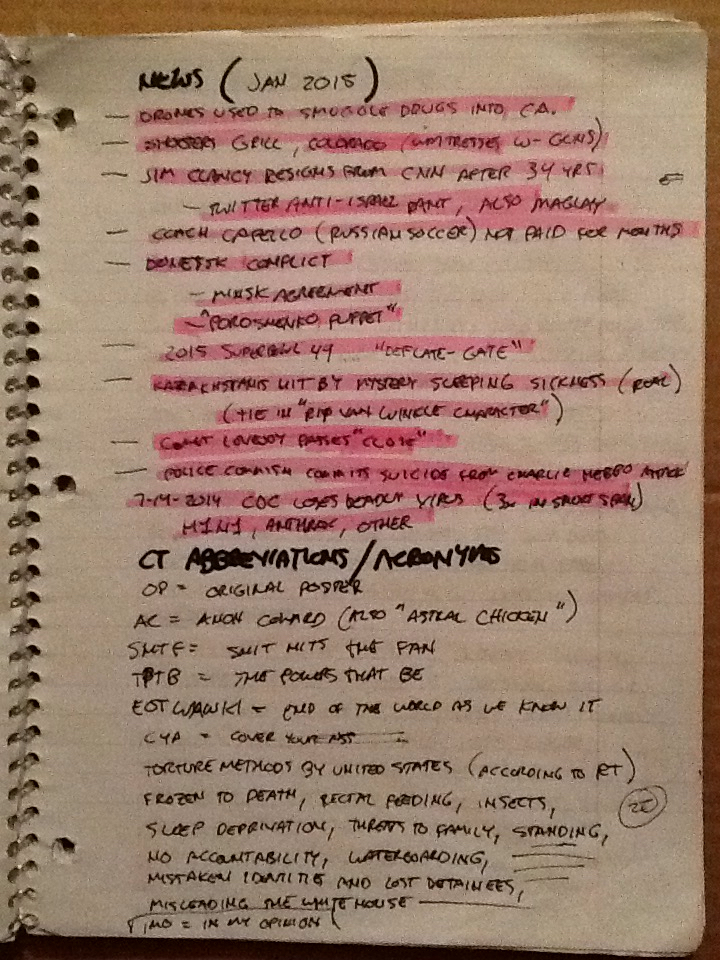 NEWS (JAN 2015)
— DRONES USED TO SMUGGLE DRUGS INTO CA.
— SHOOTERS GRILL, COLORADO (WAITRESSES W- GUNS)
— JIM CLANCY RESIGNS FROM CNN AFTER 34 YRS.
— TWITTER ANTI-ISRAEL RANT, ALSO
— COACH CAPELLO (RUSSIAN SOCCER) NOT PAID FOR MONTHS
— DONETSK CONFLICT
— MINSK AGREEMENT
— "POROSHENKO PUPPET"
— 2015 SUPERBOWL 49 ... "DEFLATE-GATE"
— KAZAKHSTANIS HIT BY MYSTERY SLEEPING SICKNESS (REAL)
(TIE IN "RIP VAN WINKLE CHARACTER")
— COMET LOVEJOY PASSES "CLOSE"
— POLICE COMMISH COMMITS SUICIDE FROM CHARLIE HEBDO ATTACK
7-14-2014 CDC LOSES DEADLY VIRUS (3x IN SHORT SPAN)
H1N1, ANTHRAX, OTHER
CT ABBREVIATIONS/ACRONYMS
OP = ORIGINAL POSTER
AC = ANON COWARD (ALSO "ASTRAL CHICKEN")
SHTF = SHIT HITS THE FAN
TPTB = THE POWERS THAT BE
EOTWAWKI = END OF THE WORLD AS WE KNOW IT
CYA = COVER YOUR ASS
TORTURE METHODS BY UNITED STATES (ACCORDING TO RT)
FROZEN TO DEATH, RECTAL FEEDING, INSECTS,
SLEEP DEPRIVATION, THREATS TO FAMILY, STANDING,
NO ACCOUNTABILITY, WATERBOARDING,
MISTAKEN IDENTITIE AND LOST DETAINEES,
MISLEADING THE WHITE HOUSE
IMO = IN MY OPINION